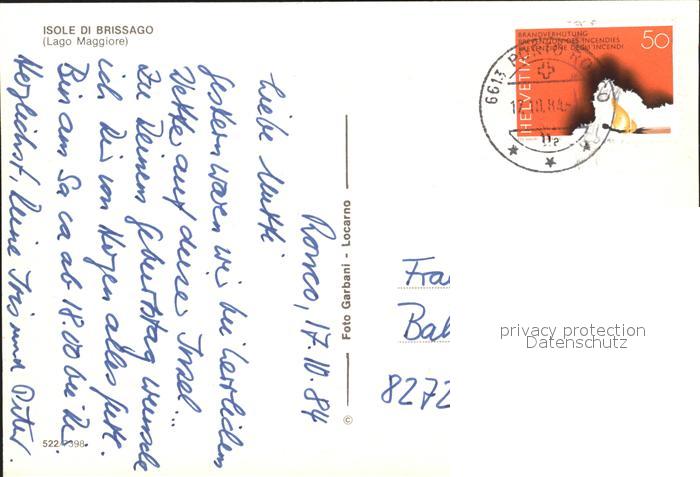 ISOLE DI BRISSAGO
(Lago Maggiore)
Ronco, 17.10.84
Liebe Mutti
gestern waren wir bei herrlichem
Wetter auf dieser Insel...
Zu Deinem Geburtstag wünsche
ich Dir von Herzen alles gute.
Bin am Sa ca ab 18.00 bei Dir.
Herzlichst, Deine Iris und Peter.
522/7398
© Foto Garbani - Locarno
BRANDVERHÜTUNG
PREVENTION DES INCENDIES
PREVENZIONE DEGLI INCENDI
50
HELVETIA
6613 PORTO RO
17.10.84
Fra
Bah
8272
privacy protection
Datenschutz